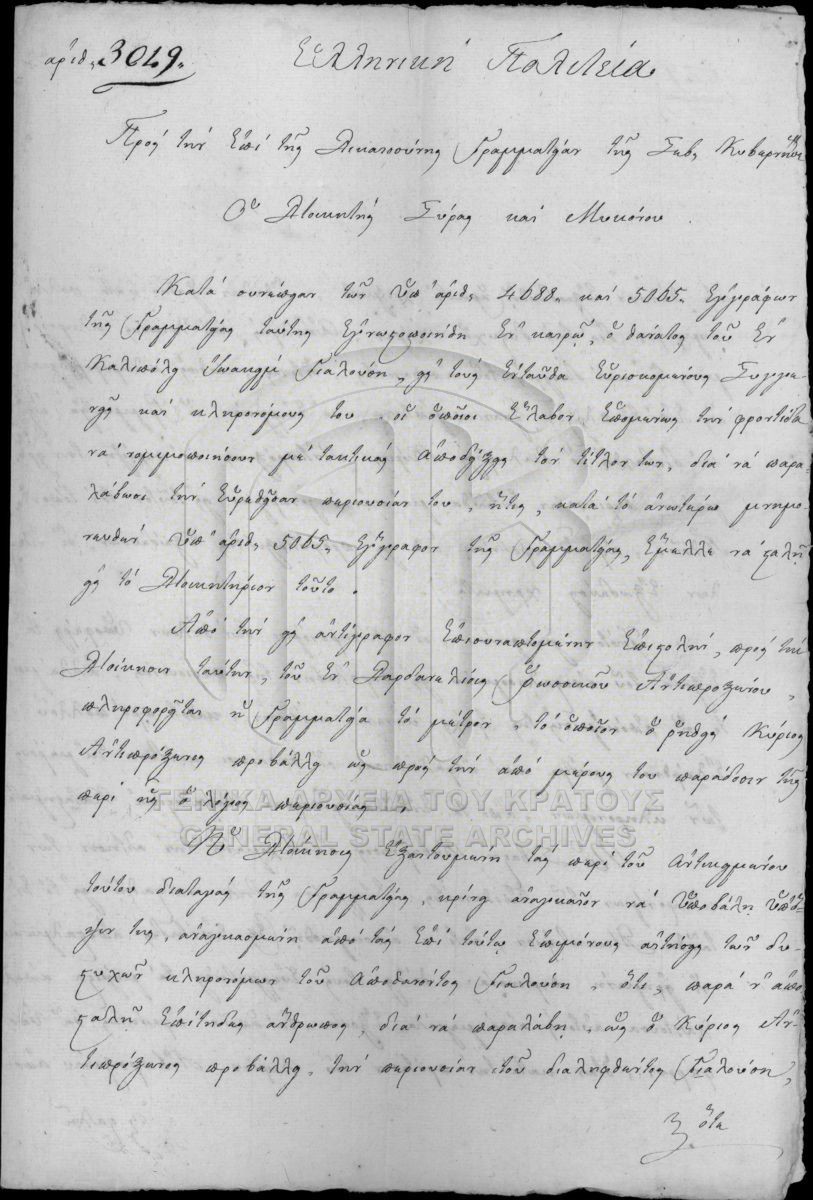 ἀριθ. 3049.
Ἑλληνική Πολιτεία
Πρός τήν ἐπί τῆς Δικαιοσύνης Γραμματείαν τῆς Σεβ. Κυβερνήσ.
Ὁ Διοικητής Σύρας καί Μυκόνου
Κατά συνέπειαν τῶν ὑπ' ἀριθ. 4688. καί 5065. ἐγγράφων
τῆς Γραμματείας ταύτης ἐγνωστοποιήθη ἐν καιρῷ, ὁ θάνατος τοῦ ἐν
Καλιπόλει Ἰωακείμ Γιαλούση, εἰς τούς ἐνταῦθα εὑρισκομένους Συγγε-
νεῖς καί κληρονόμους του. οἱ ὁποῖοι ἔλαβον ἑπομένως τήν φροντίδα
νά νομιμοποιήσουν μέ τακτικάς ἀποδείξεις τόν τίτλον των, διά νά παρα-
λάβωσι τήν εὑρεθεῖσαν περιουσίαν του, ἥτις, κατά τό ἀνωτέρω μνημο-
νευθέν ὑπ' ἀριθ. 5065. ἔγγραφον τῆς Γραμματείας, ἔμελλε νά σταλῇ
εἰς τό Διοικητήριον τοῦτο.
Ἀπό τήν εἰς ἀντίγραφον ἐπισυναπτομένην ἐπιστολήν, πρός τήν
Διοίκησιν ταύτην, τοῦ ἐν Δαρδανελίοις Ῥωσσικοῦ Ἀντιπροξένου,
πληροφορεῖται ἡ Γραμματεία τό μέτρον, τό ὁποῖον ὁ ῥηθείς Κύριος
Ἀντιπρόξενος προβάλλει ὡς πρός τήν ἀπό μέρους του παράδοσιν τῆς
περί ἧς ὁ λόγος περιουσίας.
Ἡ Διοίκησις ἐξαιτουμένη τάς περί τοῦ ἀντικειμένου
τούτου διαταγάς τῆς Γραμματείας, κρίνει ἀναγκαῖον νά ὑποβάλῃ ὑπ' ὄ-
ψιν της, ἀναγκασμένη ἀπό τάς ἐπί τούτῳ ἐπιμόνους αἰτήσεις τῶν δυ-
στυχῶν κληρονόμων τοῦ ἀποθανόντος Γιαλούση, ὅτι, παρά ν' ἀπο-
σταλῇ ἐπίτηδες ἄνθρωπος, διά νά παραλάβῃ, ὡς ὁ Κύριος Ἀν-
τιπρόξενος προβάλλει, τήν περιουσίαν τοῦ διαληφθέντος Γιαλούση,
ΓΕΝΙΚΑ ΑΡΧΕΙΑ ΤΟΥ ΚΡΑΤΟΥΣ
GENERAL STATE ARCHIVES